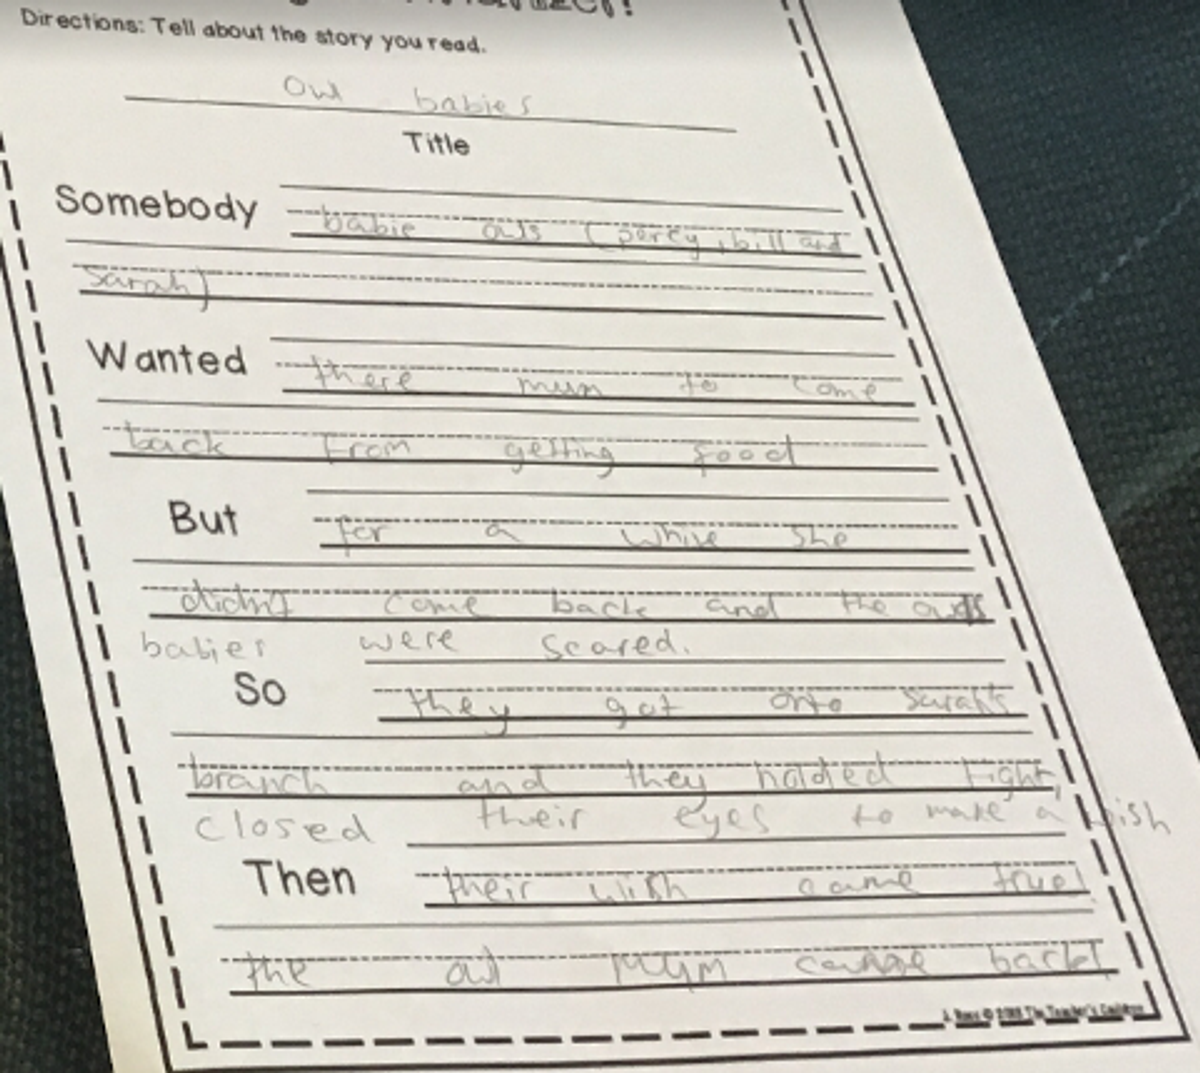 Directions: Tell about the story you read.
Owl babies
Title
Somebody babie owls (percy, bill and
Sarah)
Wanted there mum to come
back from getting food
But for a while she
didn't come back and the owls
babies were scared.
So they got onto Sarah's
branch and they holded tight,
closed their eyes to make a wish
Then their wish came true!
the owl mum came back!